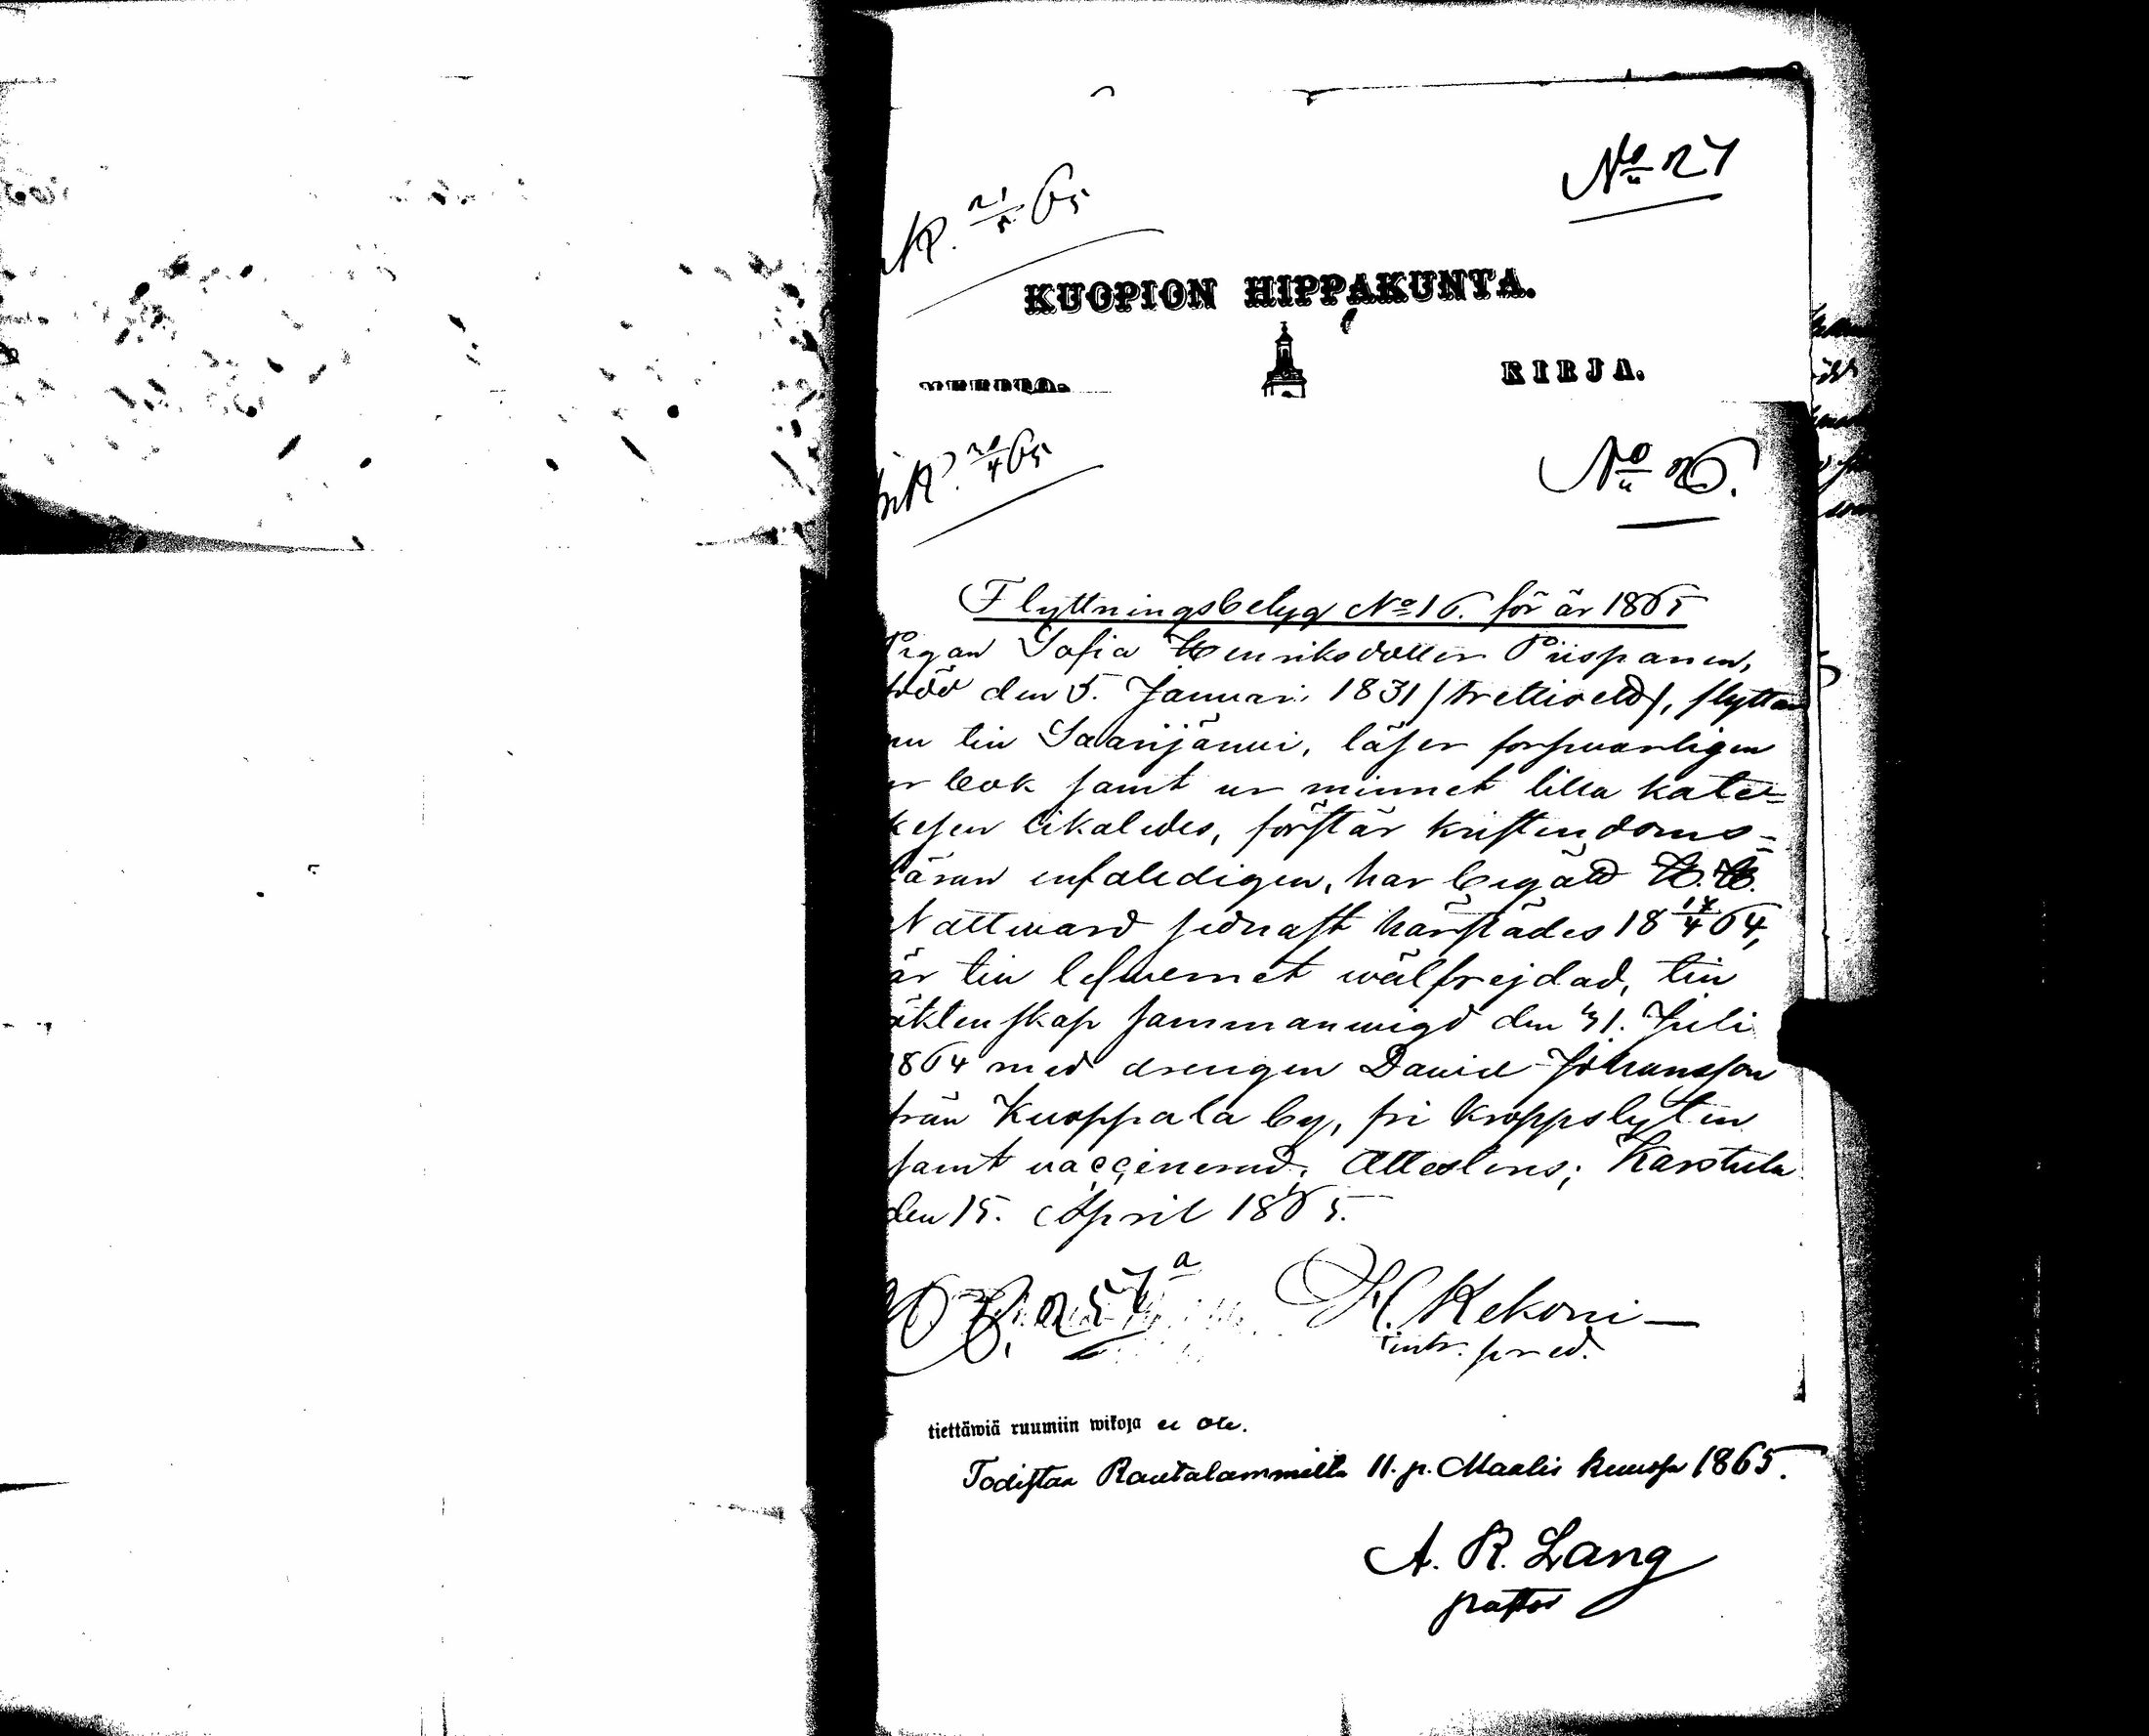 No 27
ink. 21/5 65
KUOPION HIPPAKUNTA.
KIRJA.
ink. 20/4 65
No 26.
Flyttningsbetyg No 16. för år 1865
Pigan Sofia Henriksdotter Piispanen,
född den 5. Januari 1831 /trettioett/, flyttar
nu till Saarijärwi, läser forswarligen
ur bok samt ur minnet lilla kate-
kesen likaledes, förstår kristendoms-
läran enfaldigen, har begått H. H.
Nattward sednast härstädes 18 17/4 64,
är till lefwernet wälfrejdad, till
äktenskap sammanwigd den 31. Juli
1864 med drengen David Johansson
från Kuoppala by, fri kroppslyten
samt vaccinerad. Attesteras; Karstula
den 15. April 1865.
H. Kekoni
intr. pred.
tiettäwiä ruumiin wikoja ei ole.
Todistaa Rautalammilta 11. p. Maalis kuussa 1865.
A. R. Lang
pastor